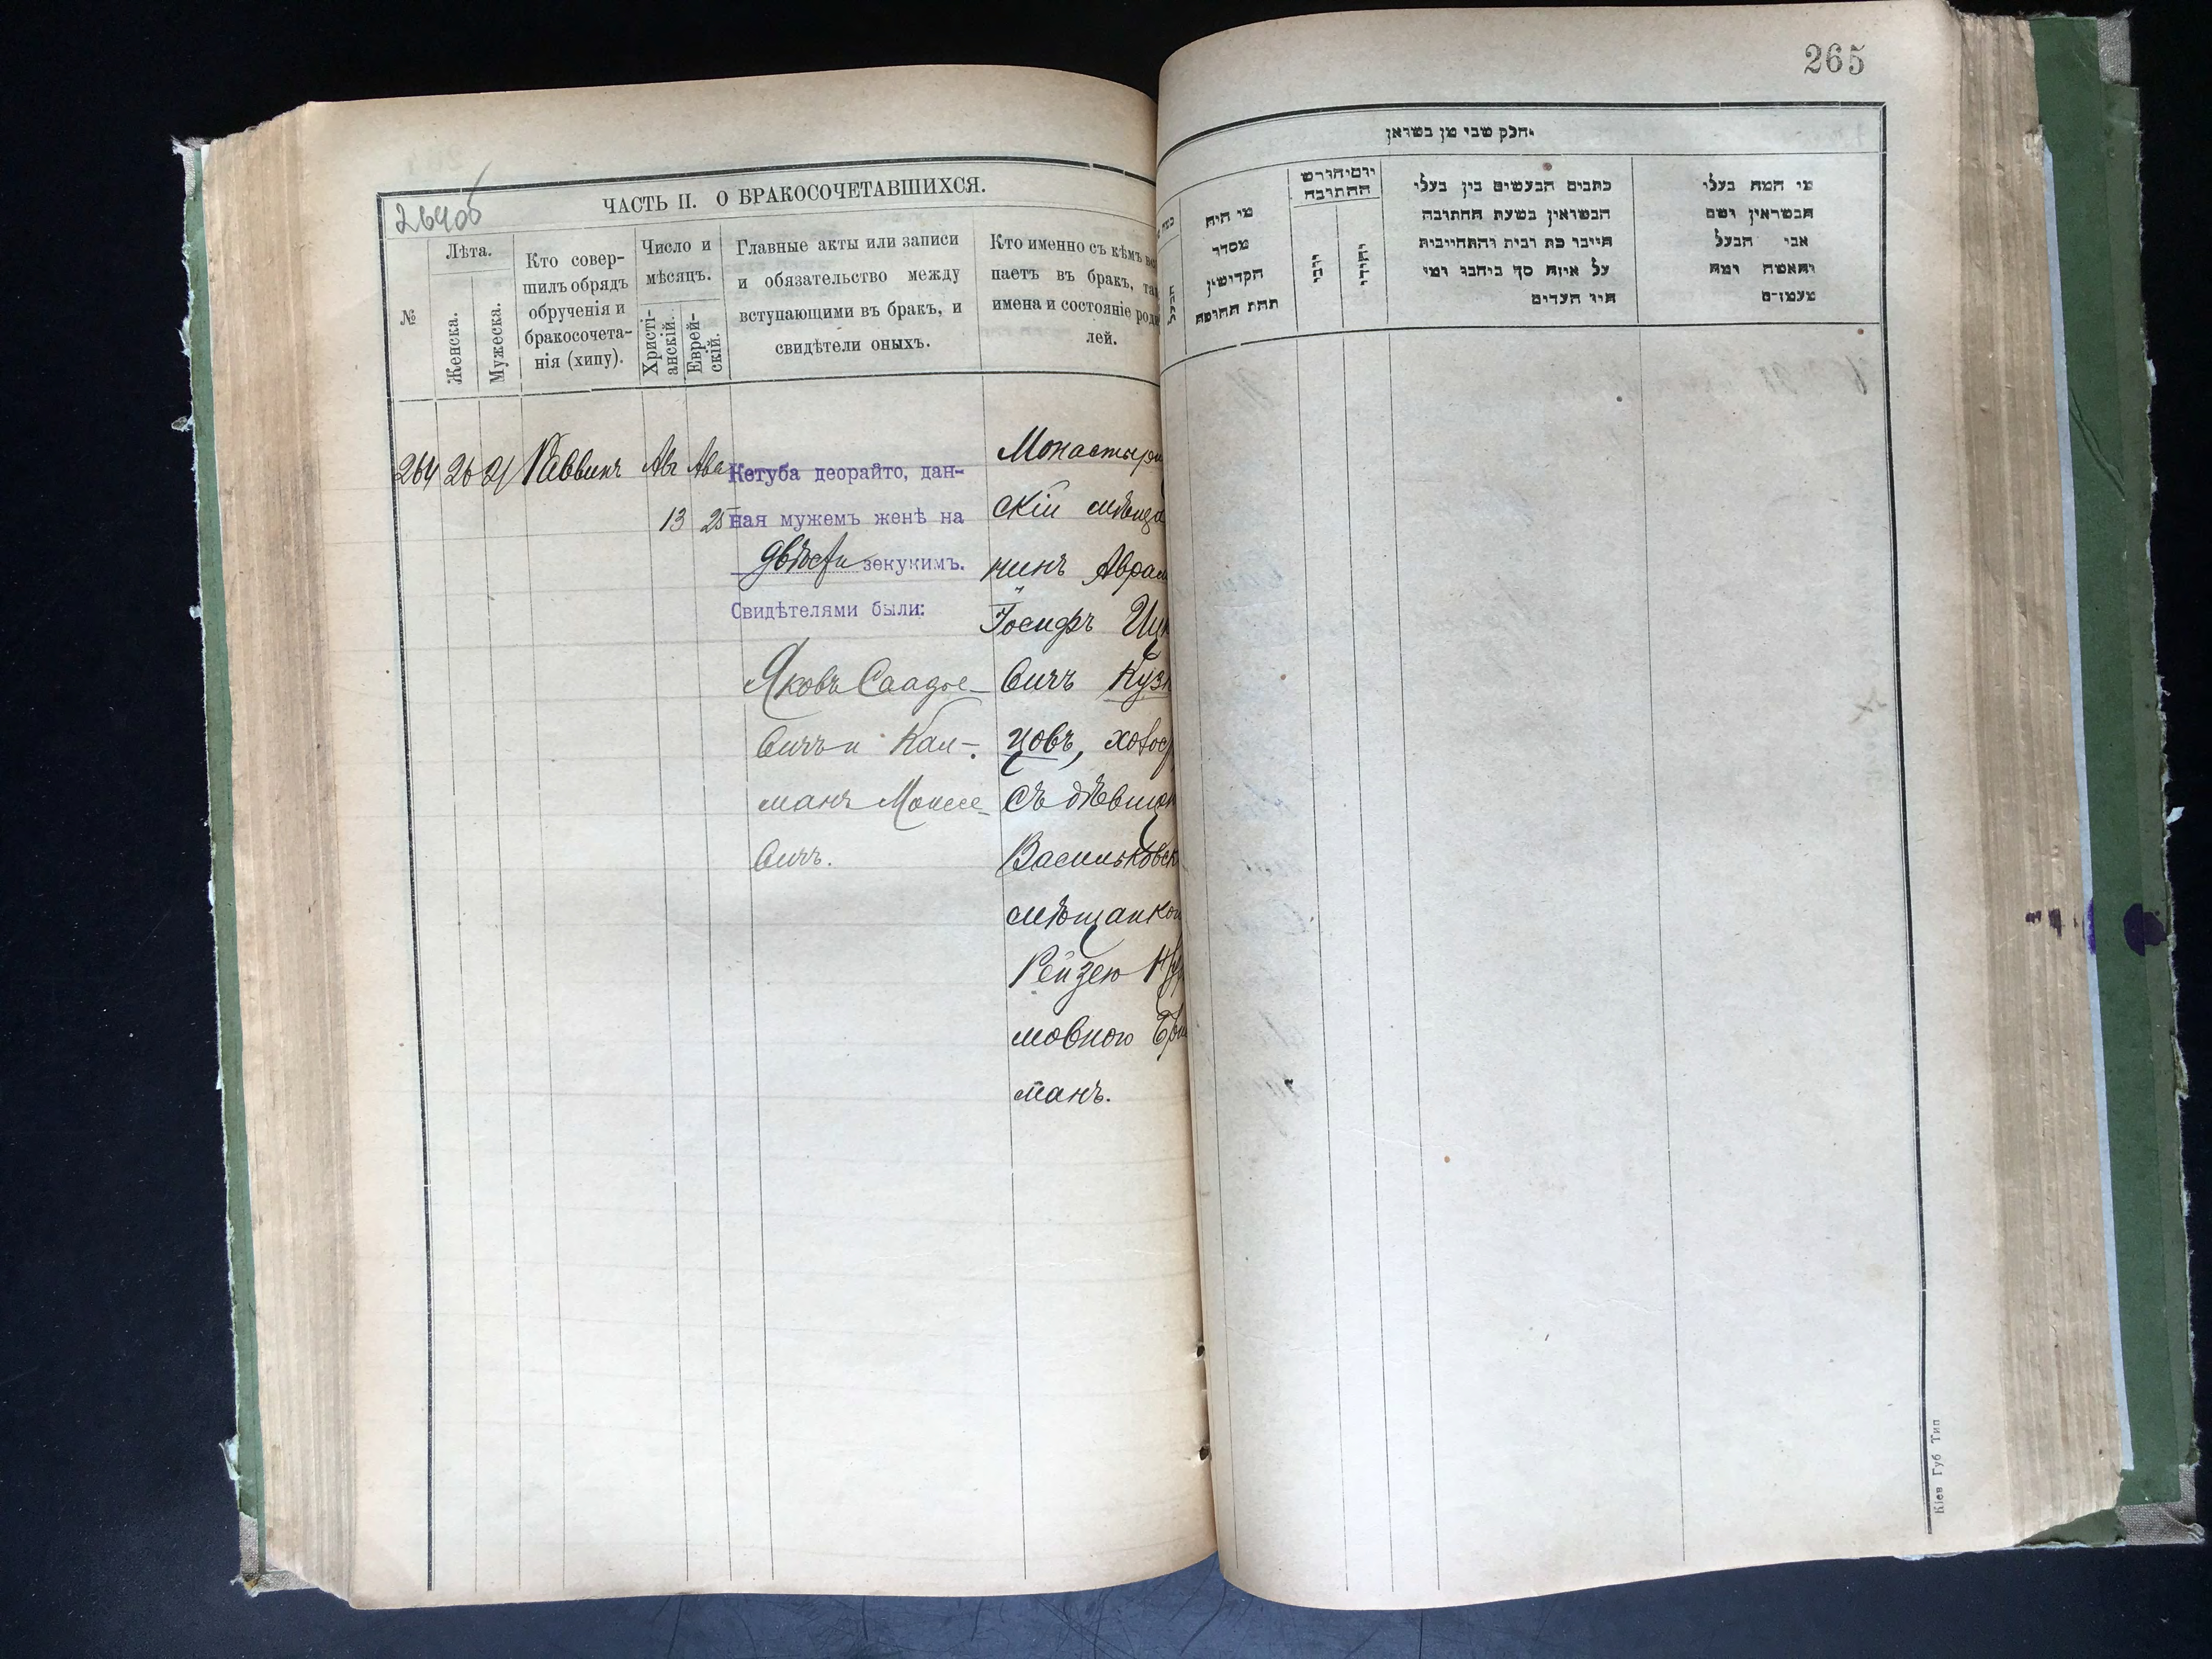 265
264об
ЧАСТЬ II. О БРАКОСОЧЕТАВШИХСЯ.
№
Лѣта.
Женска.
Мужеска.
Кто совер-
шилъ обрядъ
обрученія и
бракосочета-
нія (хипу).
Число и
мѣсяцъ.
Христі-
анскій.
Еврей-
скій.
Главные акты или записи
и обязательство между
вступающими въ бракъ, и
свидѣтели оныхъ.
Кто именно съ кѣмъ
паетъ въ бракъ,
имена и состояніе
лей.
264 26 21 Раввинъ Ав Ава
13 25
Кетуба деорайто, дан-
ная мужемъ женѣ на
двѣсти зекукимъ.
Свидѣтелями были:
Яковъ Саадье-
вичъ и Кал-
манъ Моисе-
вичъ.
Монастыри
скій мѣща
нинъ Аврам
Іосифъ
вичъ Кузн
цовъ, холост
съ дѣвицею
Васильковск
мѣщанкою
Рейзею
мовною
манъ.
חלק שני מן נשואין
מי היה
מסדר
הקדושין
תחת החופה
יום וחודש
החתונה
נוצרי
יהודי
כתבים הנעשים בין בעלי
הנשואין בשעת החתונה
חיובי כת ובית והתחייבות
על איזה סך ביחבו ומי
היו העדים
מי המה בעלי
הנשואין ושם
אבי הבעל
והאשה ומה
מעמדם
Кіев Губ Тип